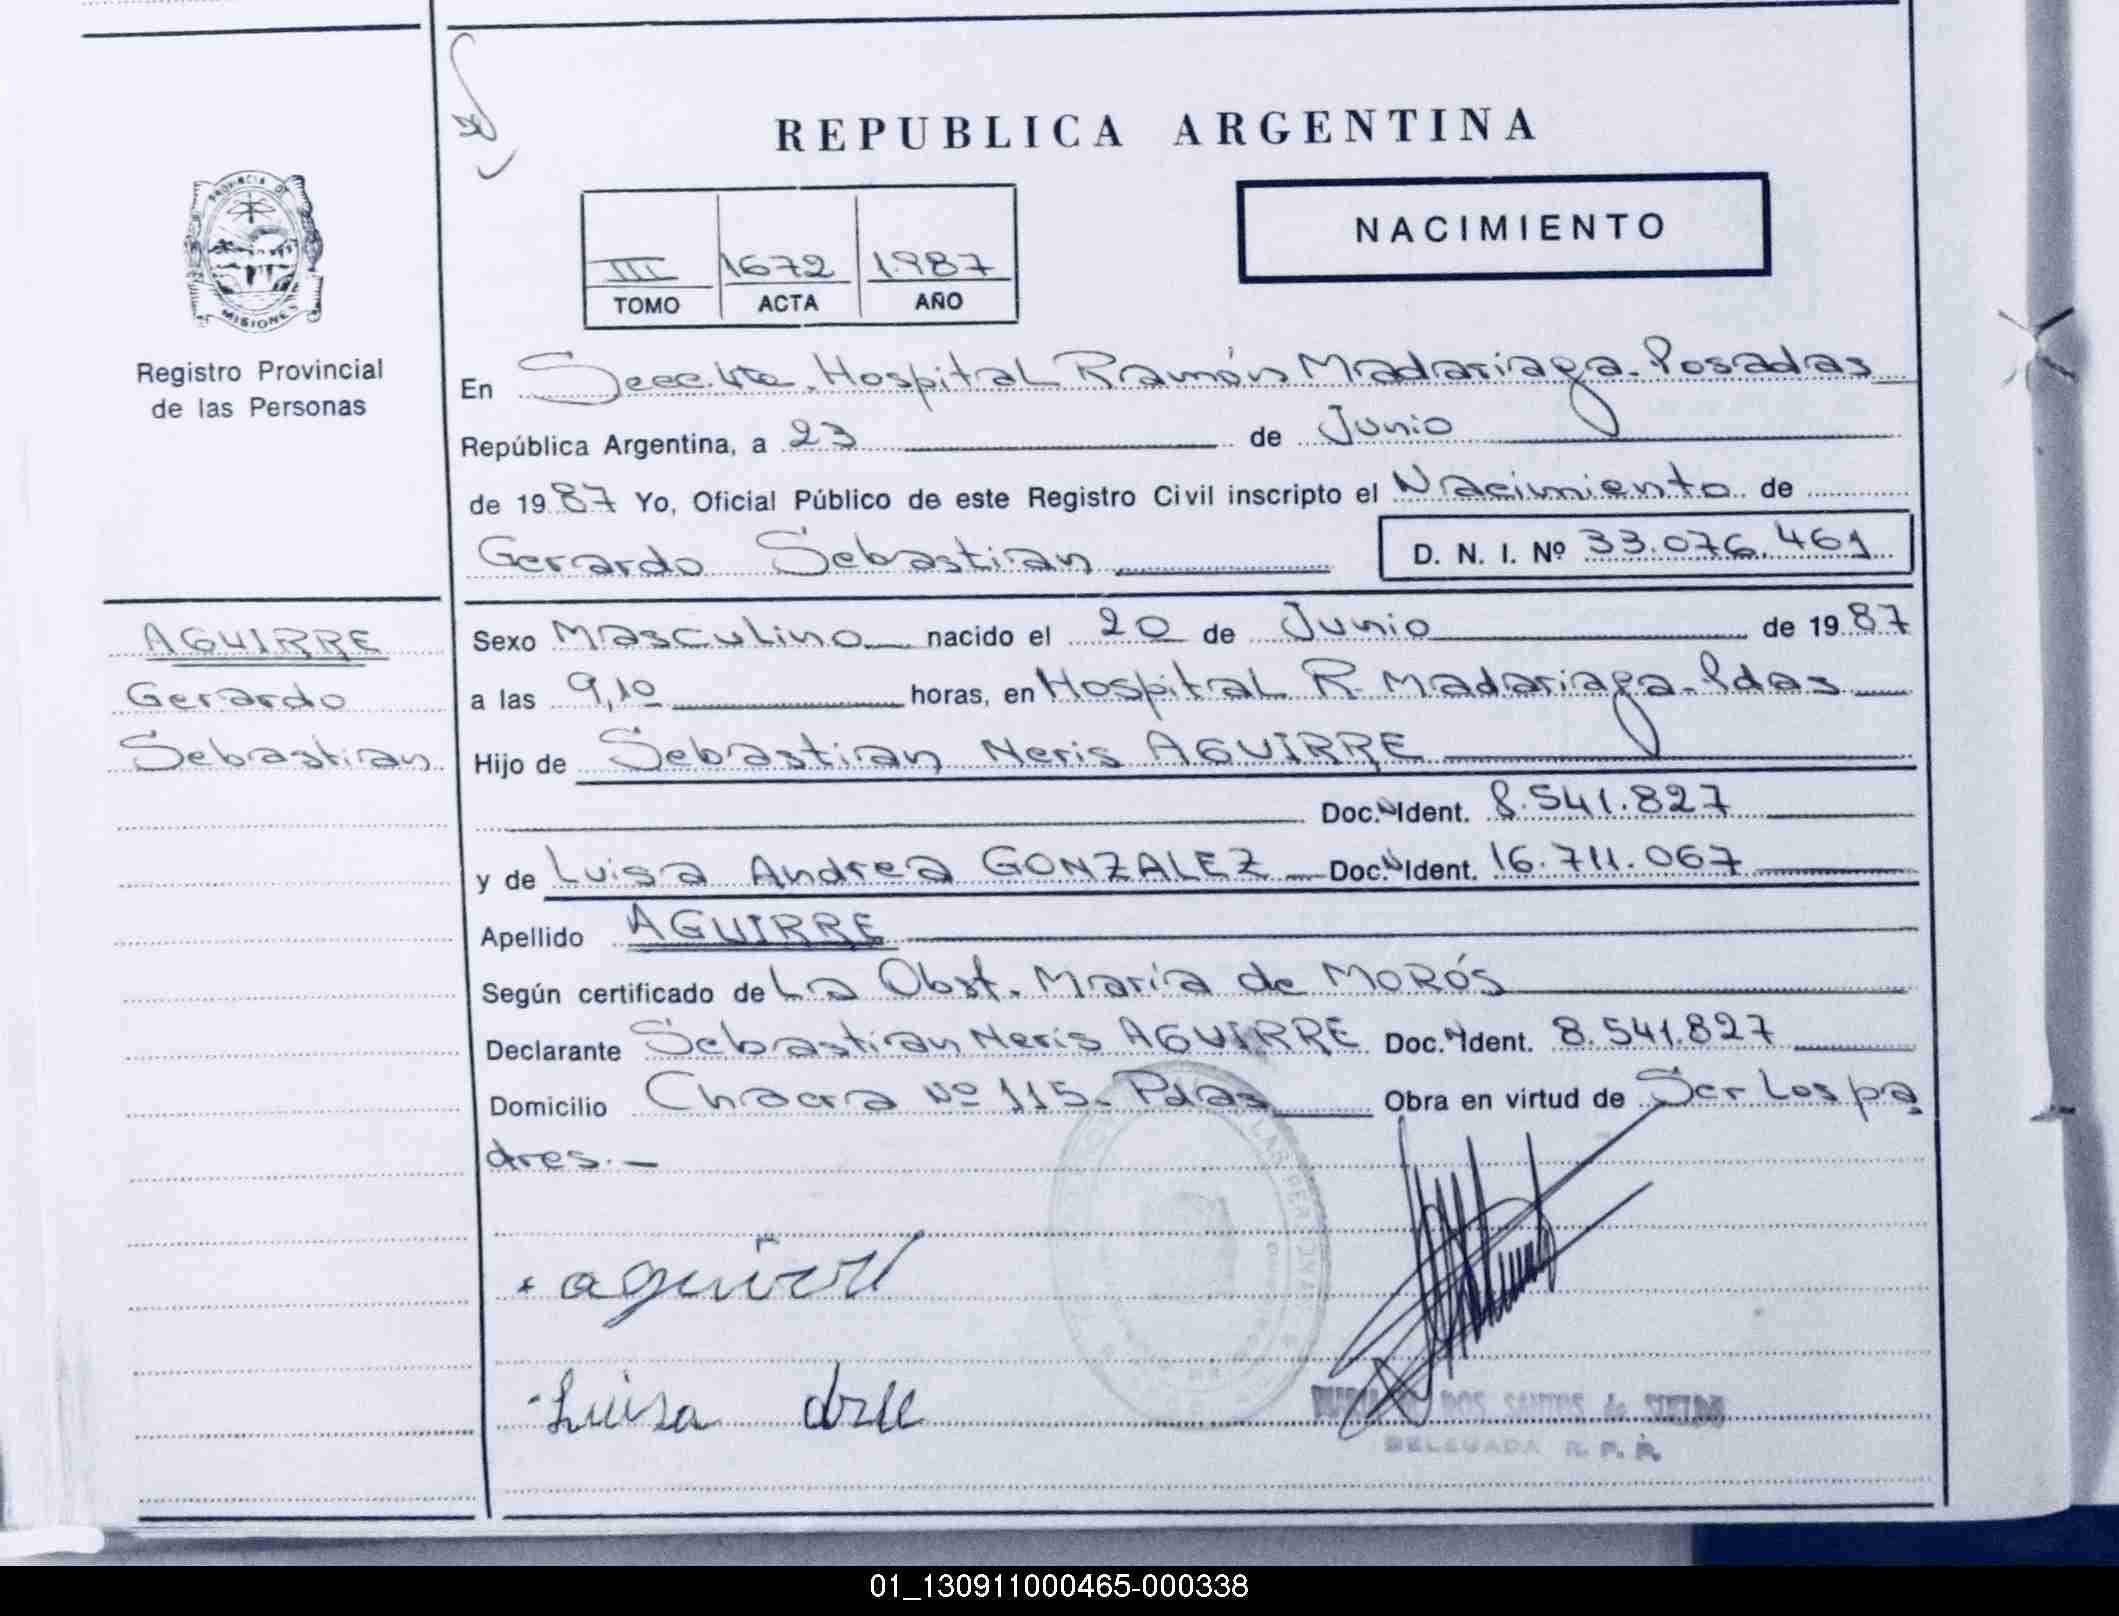 REPUBLICA ARGENTINA
NACIMIENTO
III 1672 1987
TOMO ACTA AÑO
PROVINCIA DE
MISIONES
Registro Provincial
de las Personas
En Secc. 4ta. Hospital Ramón Madariaga - Posadas
República Argentina, a 23 de Junio
de 1987 Yo, Oficial Público de este Registro Civil inscripto el Nacimiento de
Gerardo Sebastian D. N. I. Nº 33.076.461
AGUIRRE
Gerardo
Sebastian
Sexo Masculino nacido el 20 de Junio de 1987
a las 9,10 horas, en Hospital R. Madariaga - Pdas
Hijo de Sebastian Neris AGUIRRE
Doc. N Ident. 8.541.827
y de Luisa Andrea GONZALEZ Doc. N Ident. 16.711.067
Apellido AGUIRRE
Según certificado de La Obst. María de MORÓS
Declarante Sebastian Neris AGUIRRE Doc. N Ident. 8.541.827
Domicilio Chacra Nº 115 - Pdas Obra en virtud de Ser los pa
dres. -
aguirre
Luisa
DOS SANTOS de
DELEGADA R. P. P.
01_130911000465-000338